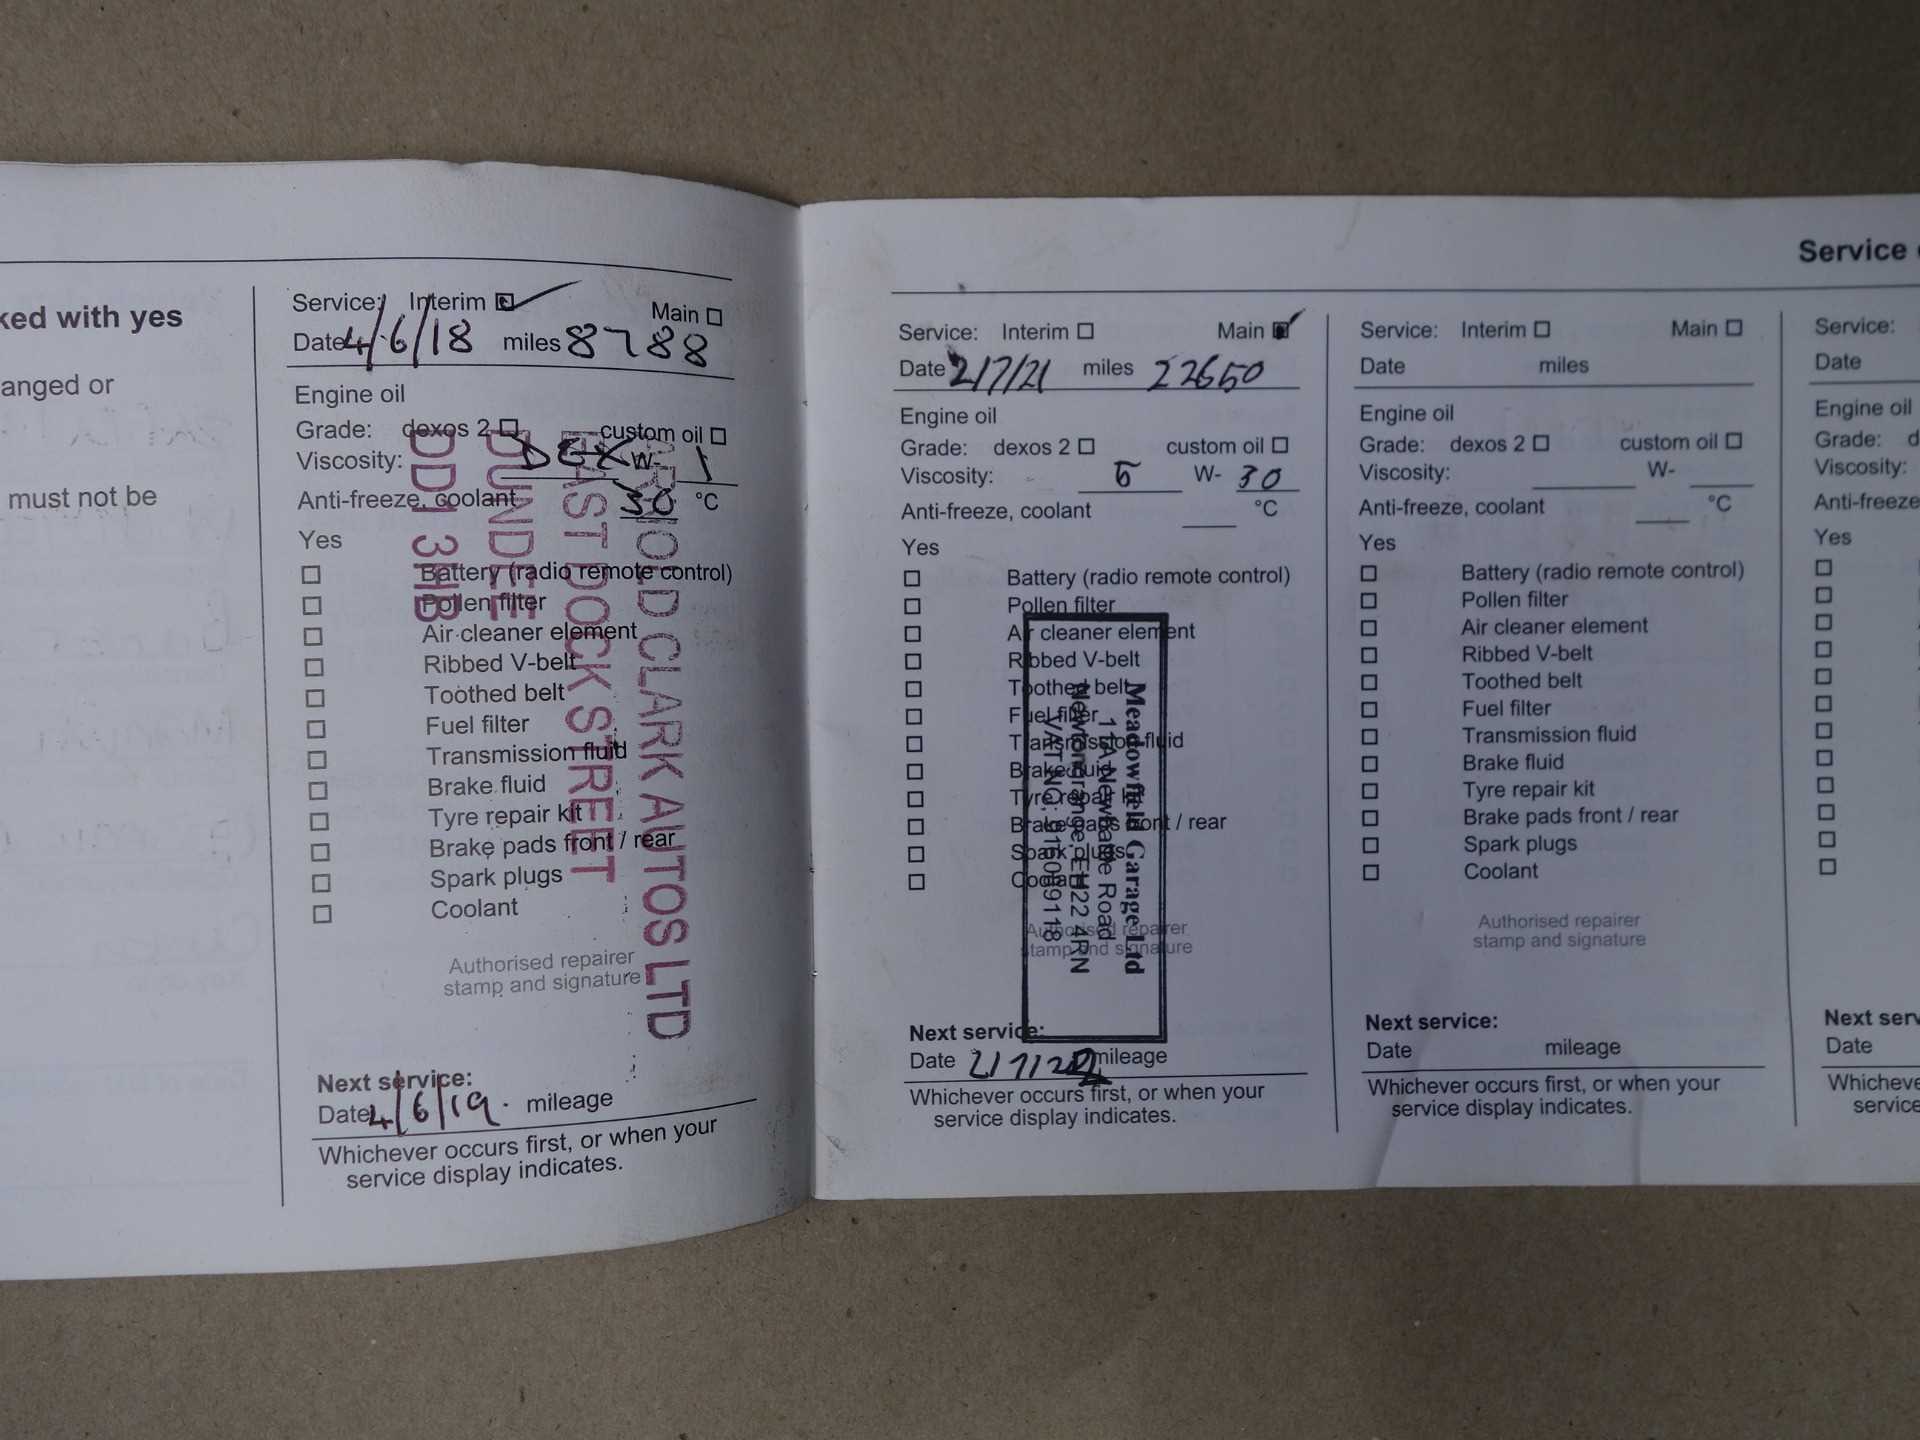 ked with yes
anged or
must not be
Service: Interim Main
Date 4/6/18 miles 8788
Engine oil
Grade: dexos 2 custom oil
Viscosity: DEX W- 1
Anti-freeze, coolant 30 °C
Yes
Battery (radio remote control)
Pollen filter
Air cleaner element
Ribbed V-belt
Toothed belt
Fuel filter
Transmission fluid
Brake fluid
Tyre repair kit
Brake pads front / rear
Spark plugs
Coolant
Authorised repairer
stamp and signature
ARNOLD CLARK AUTOS LTD
EAST DOCK STREET
DUNDEE
DD1 3HB
Next service:
Date 4/6/19. mileage
Whichever occurs first, or when your
service display indicates.
Service
Service: Interim Main
Date 2/7/21 miles 22650
Engine oil
Grade: dexos 2 custom oil
Viscosity: 5 W- 30
Anti-freeze, coolant °C
Yes
Battery (radio remote control)
Pollen filter
Air cleaner element
Ribbed V-belt
Toothed belt
Fuel filter
Transmission fluid
Brake fluid
Tyre repair kit
Brake pads front / rear
Spark plugs
Coolant
Authorised repairer
stamp and signature
Meadowfield Garage Ltd
Newbattle Road
Newtongrange. EH22 4RN
VAT NO:
Next service:
Date 2/7/22 mileage
Whichever occurs first, or when your
service display indicates.
Service: Interim Main
Date miles
Engine oil
Grade: dexos 2 custom oil
Viscosity: W-
Anti-freeze, coolant °C
Yes
Battery (radio remote control)
Pollen filter
Air cleaner element
Ribbed V-belt
Toothed belt
Fuel filter
Transmission fluid
Brake fluid
Tyre repair kit
Brake pads front / rear
Spark plugs
Coolant
Authorised repairer
stamp and signature
Next service:
Date mileage
Whichever occurs first, or when your
service display indicates.
Service:
Date
Engine oil
Grade: d
Viscosity:
Anti-freeze
Yes
Next serv
Date
Whicheve
service